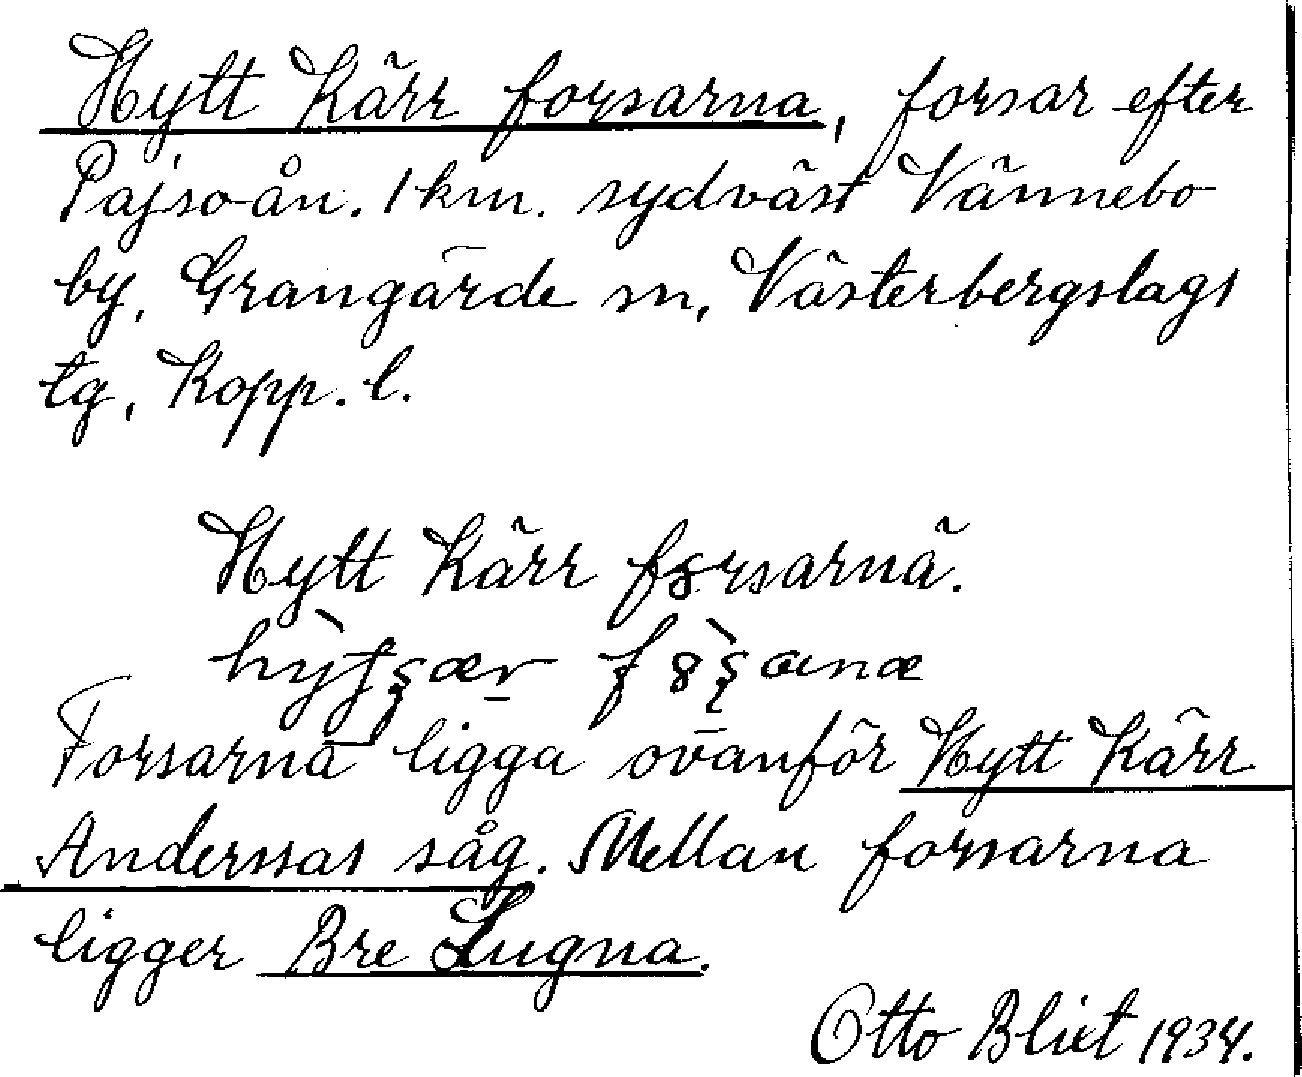 Hytt Kärr forsarna, forsar efter
Pajso-ån. 1 km. sydväst Vännebo
by, Grangärde sn, Västerbergslags
tg, Kopp. l.
Hytt Kärr forsarnä.
Forsarna ligga ovanför Hytt Kärr
Anderssas såg. Mellan forsarna
ligger Bre Lugna.
Otto Blixt 1934.